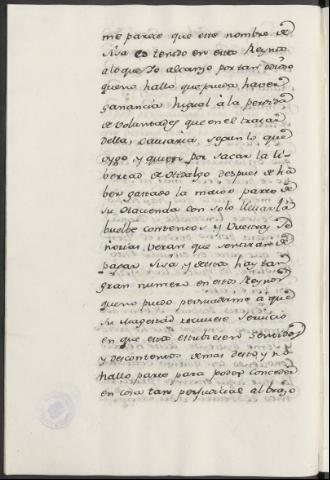 me parece que este nombre de
sisa es tenido en estos Reynos
a lo que Yo alcanzo por tan odioso
que no hallo que pueda haver
ganancia higual á la perdida
de Voluntades que en el trazar
della, causaria, segun lo que
oygo y quien por sacar la li-
bertad de Hidalgo despues de ha
ber gastado la maior parte de
su Hacienda con solo llevarla
buelbe contento; y Vuestras Se
ñorias veran que sentiran el
pagar sisa y destos hay tan
gran numero en estos Reynos
que no puedo persuadirme a que
su Magestad reciviese servicio
en que estos estubiesen sentidos
y descontentos demas desto y no
hallo parte para poder conceder
en cosa tan perjudicial al trazo